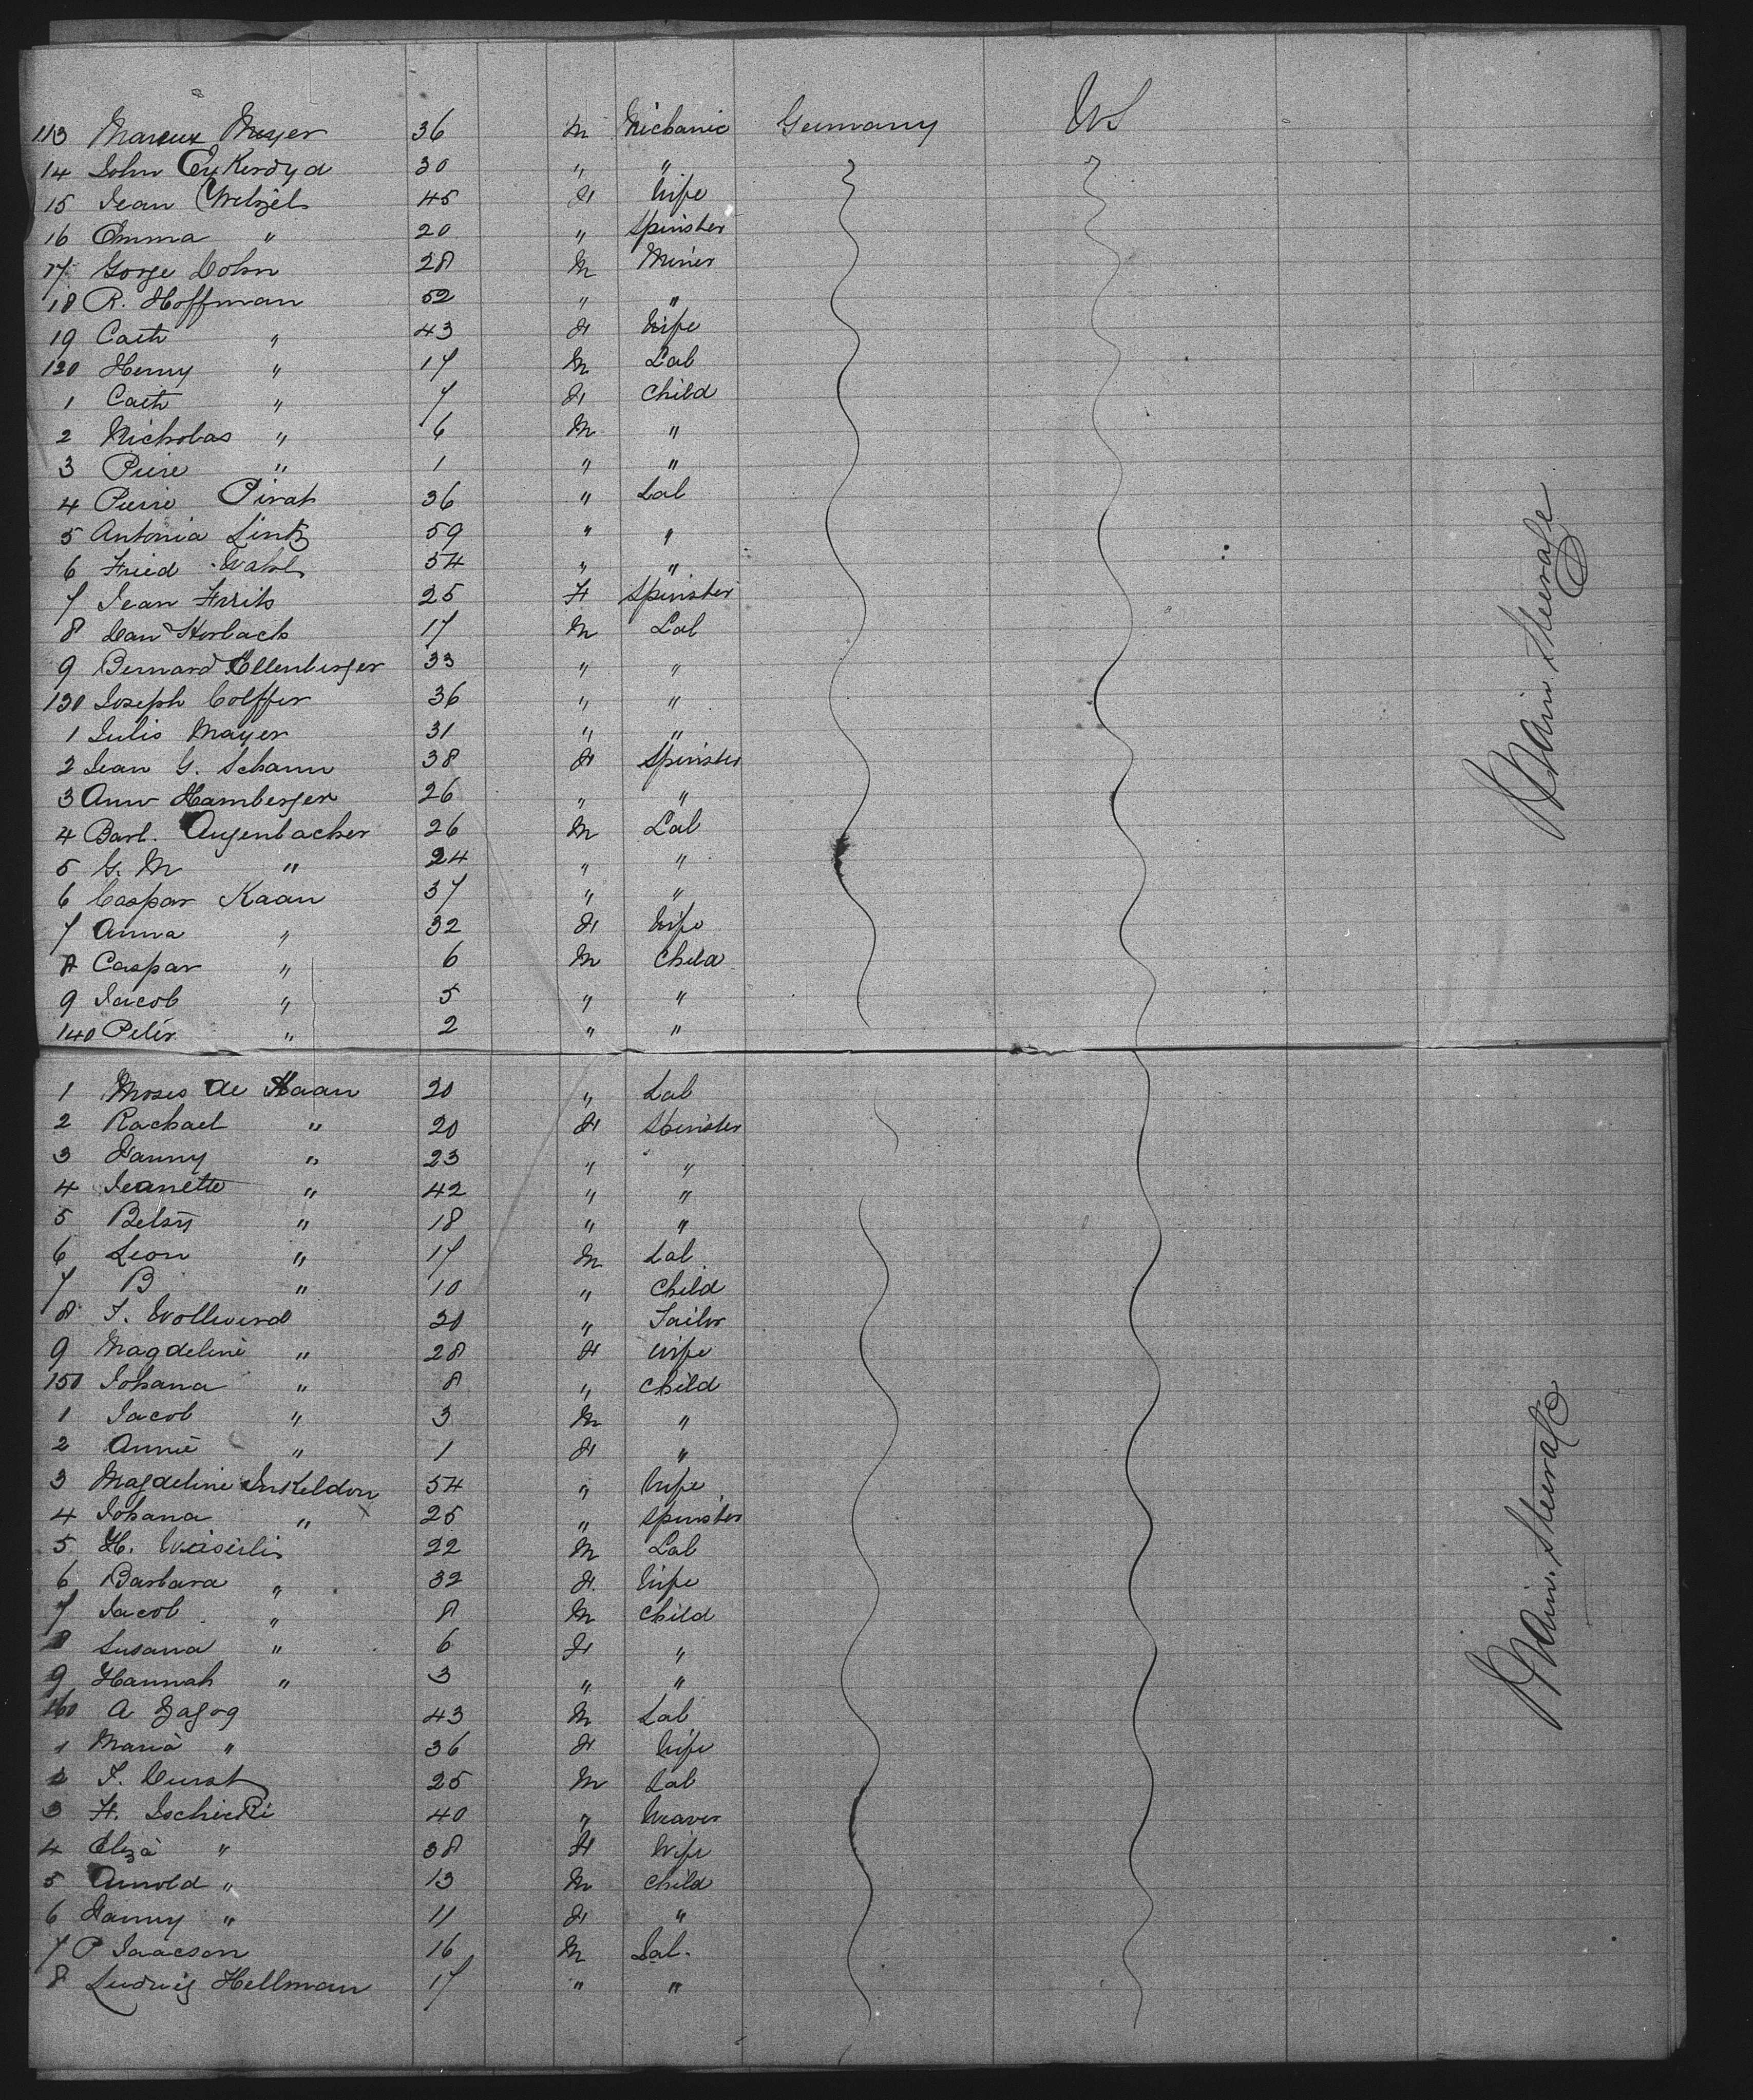 113 Marcus Meyer 36 M Michanic Germany US
14 John Eykerdyd 30 " "
15 Jean Wetzel 45 F Wife
16 Emma " 20 " Spinster
17 Gorge Dohn 28 M Miner
18 R. Hoffman 52 " "
19 Cath " 43 F Wife
120 Henry " 17 M Lab
1 Cath " 7 F Child
2 Nicholas " 6 M "
3 Peire " 1 " "
4 Pierre Pirat 36 " Lab
5 Antonia Lintz 59 " "
6 Fried Wahl 54 " "
7 Jean Frits 25 F Spinster
8 Dan Horbach 17 M Lab
9 Bernard Ellenberger 33 " "
130 Joseph Colffer 36 " "
1 Julis Mayer 31 " "
2 Jean G. Schann 38 F Spinster
3 Ann Hamberger 26 " "
4 Barb. Augenbacher 26 M Lab
5 G. M " 24 " "
6 Caspar Kaan 37 " "
7 Anna " 32 F Wife
8 Caspar " 6 M Child
9 Jacob " 5 " "
140 Peter " 2 " "
Main Steerage
1 Moses de Haan 20 " Lab
2 Rachael " 20 F Spinster
3 Fanny " 23 " "
4 Jeanette " 42 " "
5 Betsy " 18 " "
6 Leon " 17 M Lab
7 B " 10 " Child
8 J. Wollwerd 20 " Tailor
9 Magdeline " 28 F Wife
150 Johana " 8 " Child
1 Jacob " 3 M "
2 Annie " 1 F "
3 Magdeline Inkeldon 54 " Wife
4 Johana " 25 " Spinster
5 H. 22 M Lab
6 Barbara " 32 F. Wife
7 Jacob " 8 M Child
8 Susana " 6 F "
9 Hannah " 3 " "
160 A Zagog 43 M Lab
1 Maria " 36 F Wife
2 J. Durst 25 M Lab
3 H. 40 " Weaver
4 Eliza " 38 F Wife
5 Arnold " 13 M Child
6 Fanny " 11 F "
7 P Isaacson 16 M Lab.
8 Ludwig Hellman 17 " "
Main. Steerage